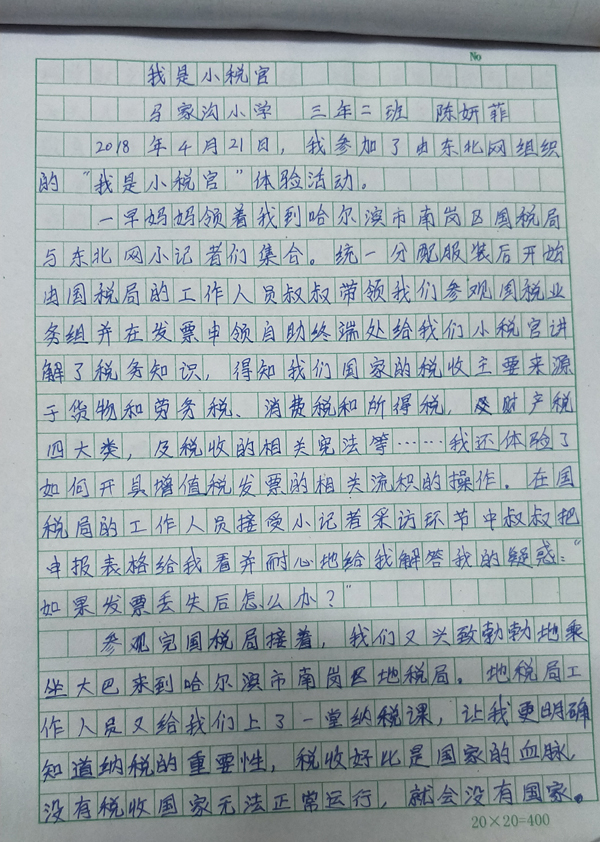 No
我是小税官
马家沟小学 三年二班 陈妍菲
2018年4月21日，我参加了由东北网组织
的“我是小税官”体验活动。
一早妈妈领着我到哈尔滨市南岗区国税局
与东北网小记者们集合。统一分配服装后开始
由国税局的工作人员叔叔带领我们参观国税业
务组并在发票申领自助终端处给我们小税官讲
解了税务知识，得知我们国家的税收主要来源
于货物和劳务税、消费税和所得税，财产税
四大类，及税收的相关宪法等……我还体验了
如何开具增值税发票的相关流积的操作。在国
税局的工作人员接受小记者采访环节中叔叔把
申报表格给我看并耐心地给我解答我的疑惑：“
如果发票丢失后怎么办？”
参观完国税局接着，我们又兴致勃勃地乘
坐大巴来到哈尔滨市南岗区地税局。地税局工
作人员又给我们上了一堂纳税课，让我更明确
知道纳税的重要性，税收好比是国家的血脉，
没有税收国家无法正常运行，就会没有国家。
20×20=400